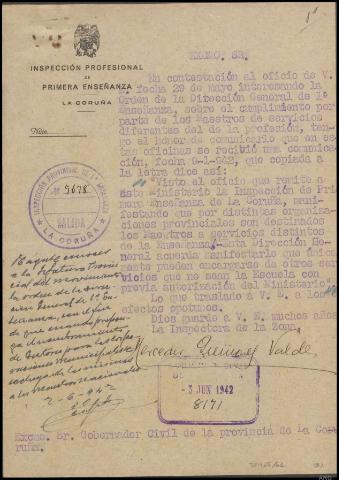 1ª
INSPECCIÓN PROFESIONAL
DE
PRIMERA ENSEÑANZA
LA CORUÑA
Núm.
EXCMO. SR.
En contestación al oficio de V.
E. fecha 29 de mayo interesando la
Orden de la Dirección General de 1ª
Enseñanza, sobre el cumplimiento por
parte de los Maestros de servicios
diferentes del de la profesión, ten-
go el honor de comunicarle que en es-
tas oficinas se recibió una comunica-
ción, fecha 9-1-942, que copiada a
la letra dice así:
"Visto el oficio que remite a
este Ministerio la Inspección de Pri
mera Enseñanza de La Coruña, mani-
festando que por distintas organiza-
ciones provinciales son destinados
los Maestros a servicios distintos
de la Enseñanza, esta Dirección Ge-
neral acuerda manifestarle que única-
mente pueden encargarse de otros ser
vicios que no sean la Escuela con
previa autorización del Ministerio."
Lo que traslado a V. E. a los
efectos oportunos.
Dios guarde a V. E. muchos años
La Inspectora de la Zona,
Mercedes Quiroga Valde
INSPECCIÓN PROVINCIAL DE 1ª ENSEÑANZA
Nº 9678
SALIDA
LA CORUÑA
Hágase conocer
a la Jefatura Provin
cial del Movimiento
la orden de la Direc
ción General de 1ª En
señanza, con el fin
de que cuando
nombramientos
de Gestores para las Corpo
raciones municipales
a los maestros nacionales
2-6-942
- 3 JUN 1942
8171
Excmo. Sr. Gobernador Civil de la provincia de La Co
ruña.